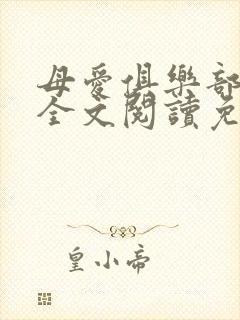 母愛俱樂部
全文閱讀免
皇小帝